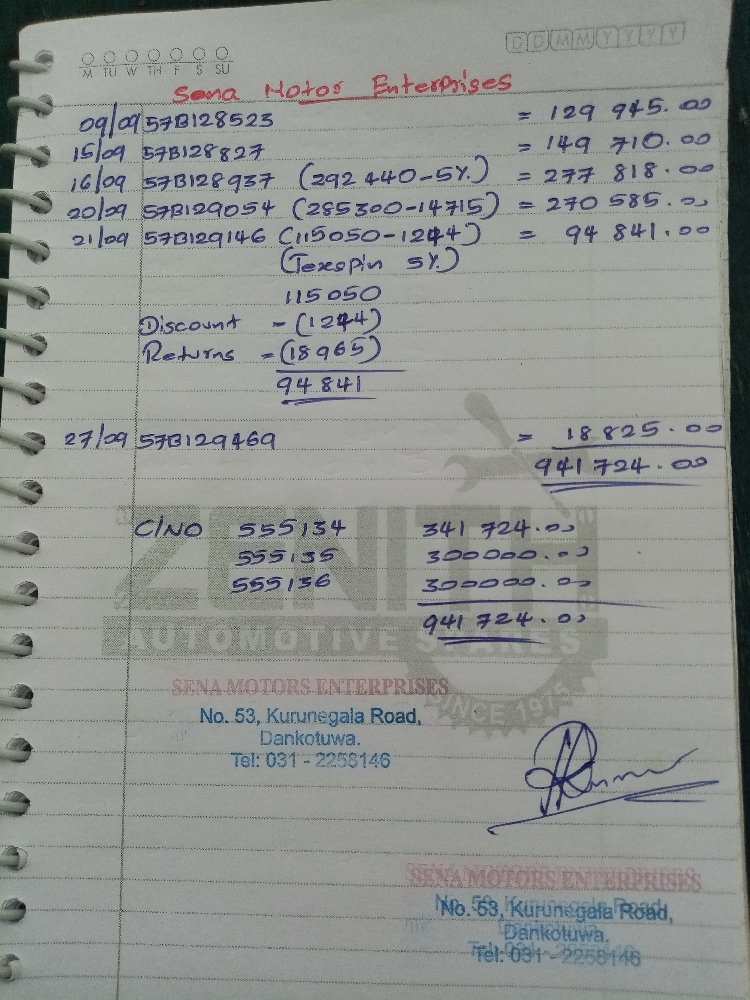 D D M M Y Y Y Y
M TU W TH F S SU
Sena Motor Enterprises
09/09 57B128523 = 129 945.00
15/09 57B128827 = 149 710.00
16/09 57B128937 (292 440-5%) = 277 818.00
20/09 57B129054 (285300-14715) = 270 585.00
21/09 57B129146 (115050-1244) = 94 841.00
(Texopin 5%)
115050
Discount - (1244)
Returns - (18965)
94 841
27/09 57B129469 = 18 825.00
941 724.00
C/NO 555134 341 724.00
555135 300000.00
555136 300000.00
941 724.00
ZENITH
AUTOMOTIVE SPARES
SINCE 1975
SENA MOTORS ENTERPRISES
No. 53, Kurunegala Road,
Dankotuwa.
Tel: 031 - 2258146
SENA MOTORS ENTERPRISES
No. 53, Kurunegala Road,
Dankotuwa.
Tel: 031 - 2258146